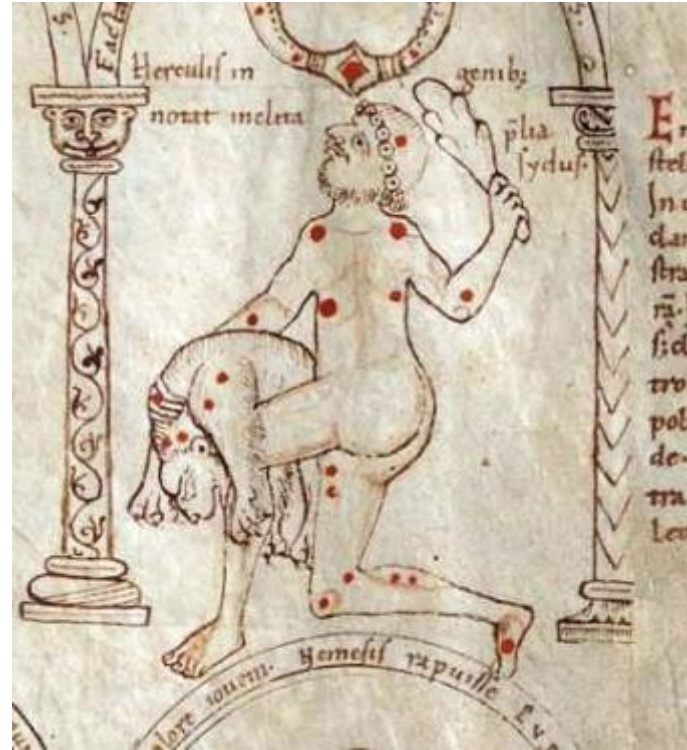 Facta
Herculis in genib;
notat inclita p̄lia
sydus.
E
stel
In
stra
rā.
tro
pol
de.
tra
olore iouem. Nemesis rapuisse